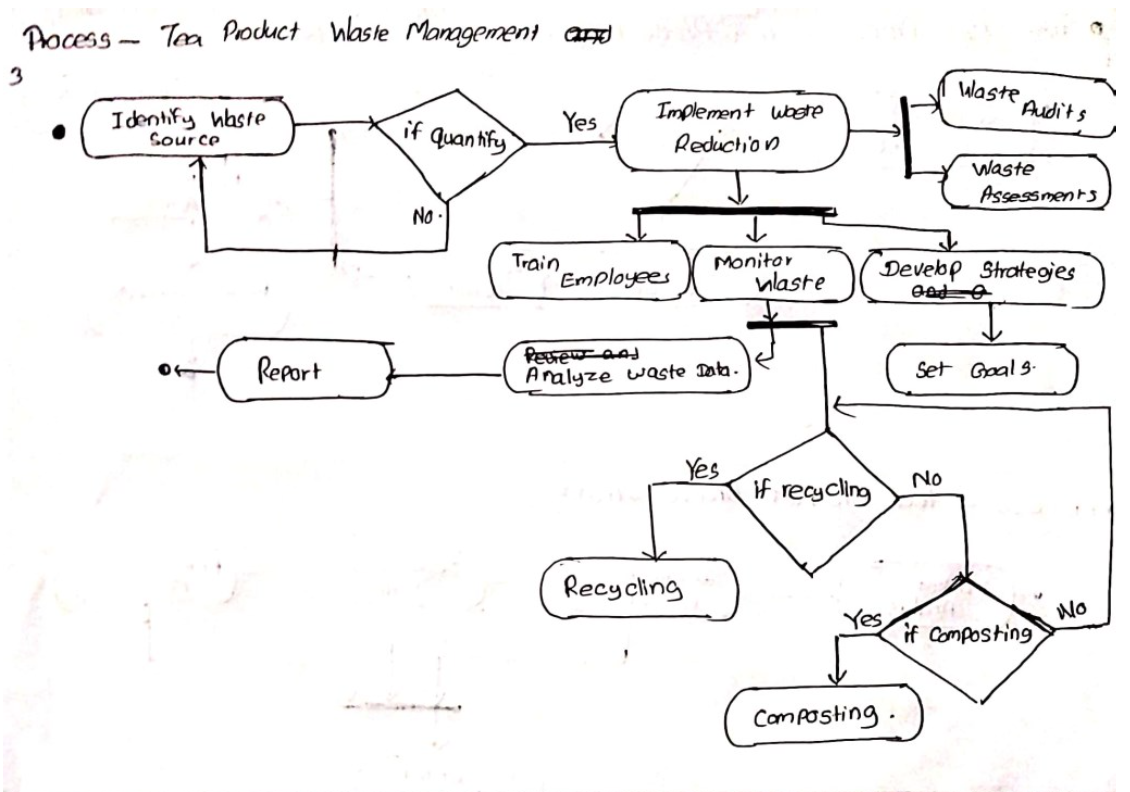 Process - Tea Product Waste Management and
3
Identify Waste
Source
if quantify
Yes
No.
Implement waste
Reduction
Waste
Audits
Waste
Assessments
Train
Employees
Monitor
Waste
Develop Strategies
and a
Set Goals.
Review and
Analyze waste Data.
Report
if recycling
Yes
No
Recycling
if Composting
Yes
No
Composting.